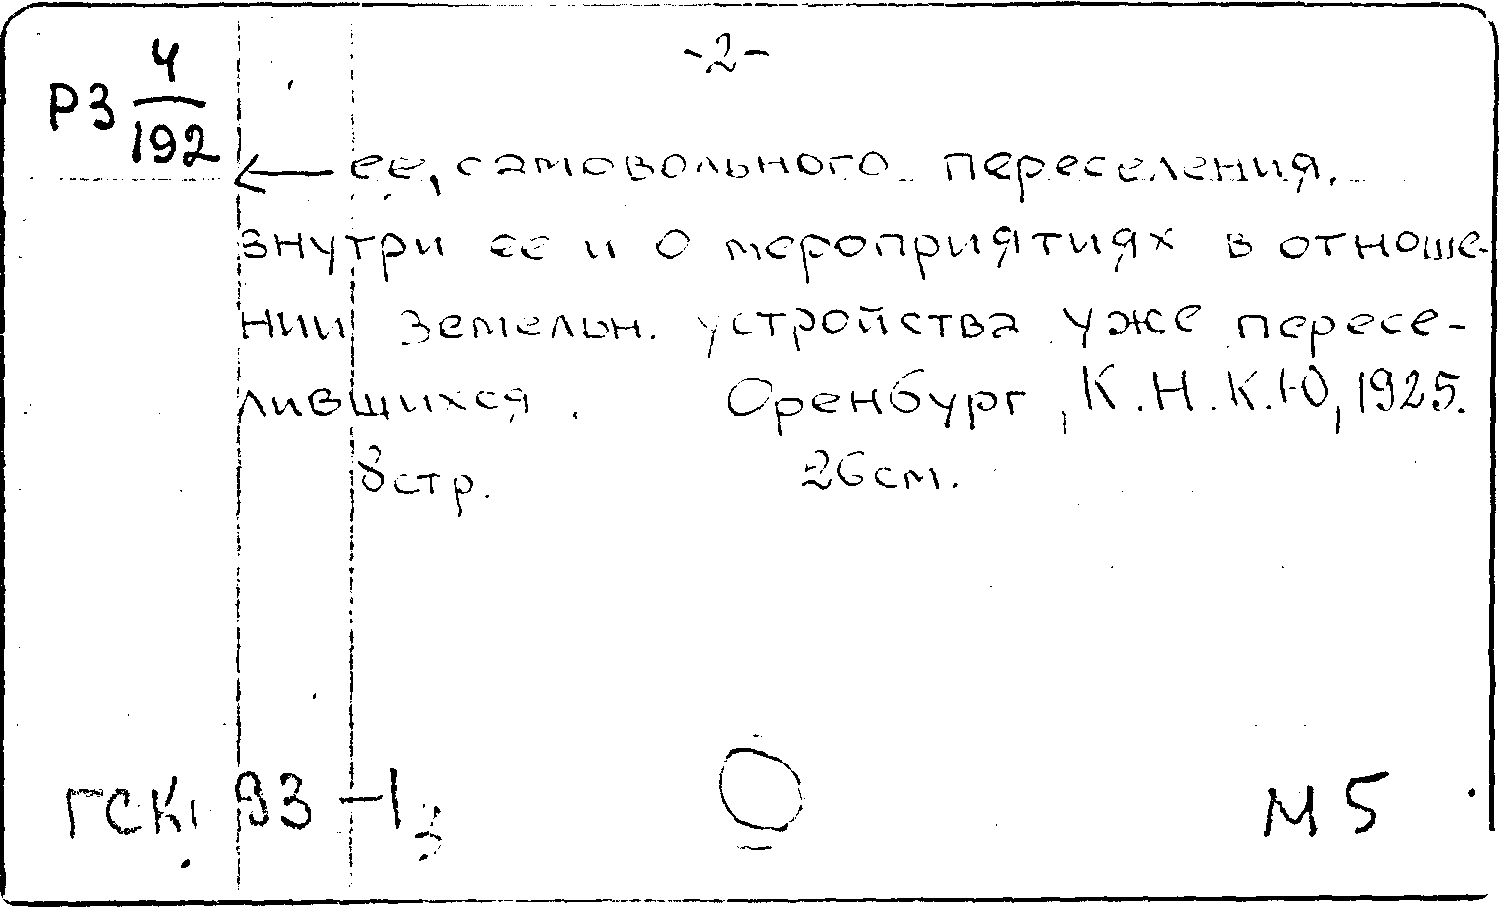 -2-
РЗ 4/192
ее, самовольного переселения,
внутри ее и о мероприятиях в отноше-
нии земельн. устройства уже пересе-
лившихся. Оренбург, К.Н.К.Ю, 1925.
8стр. 26см.
ГСК, 93-13 М5